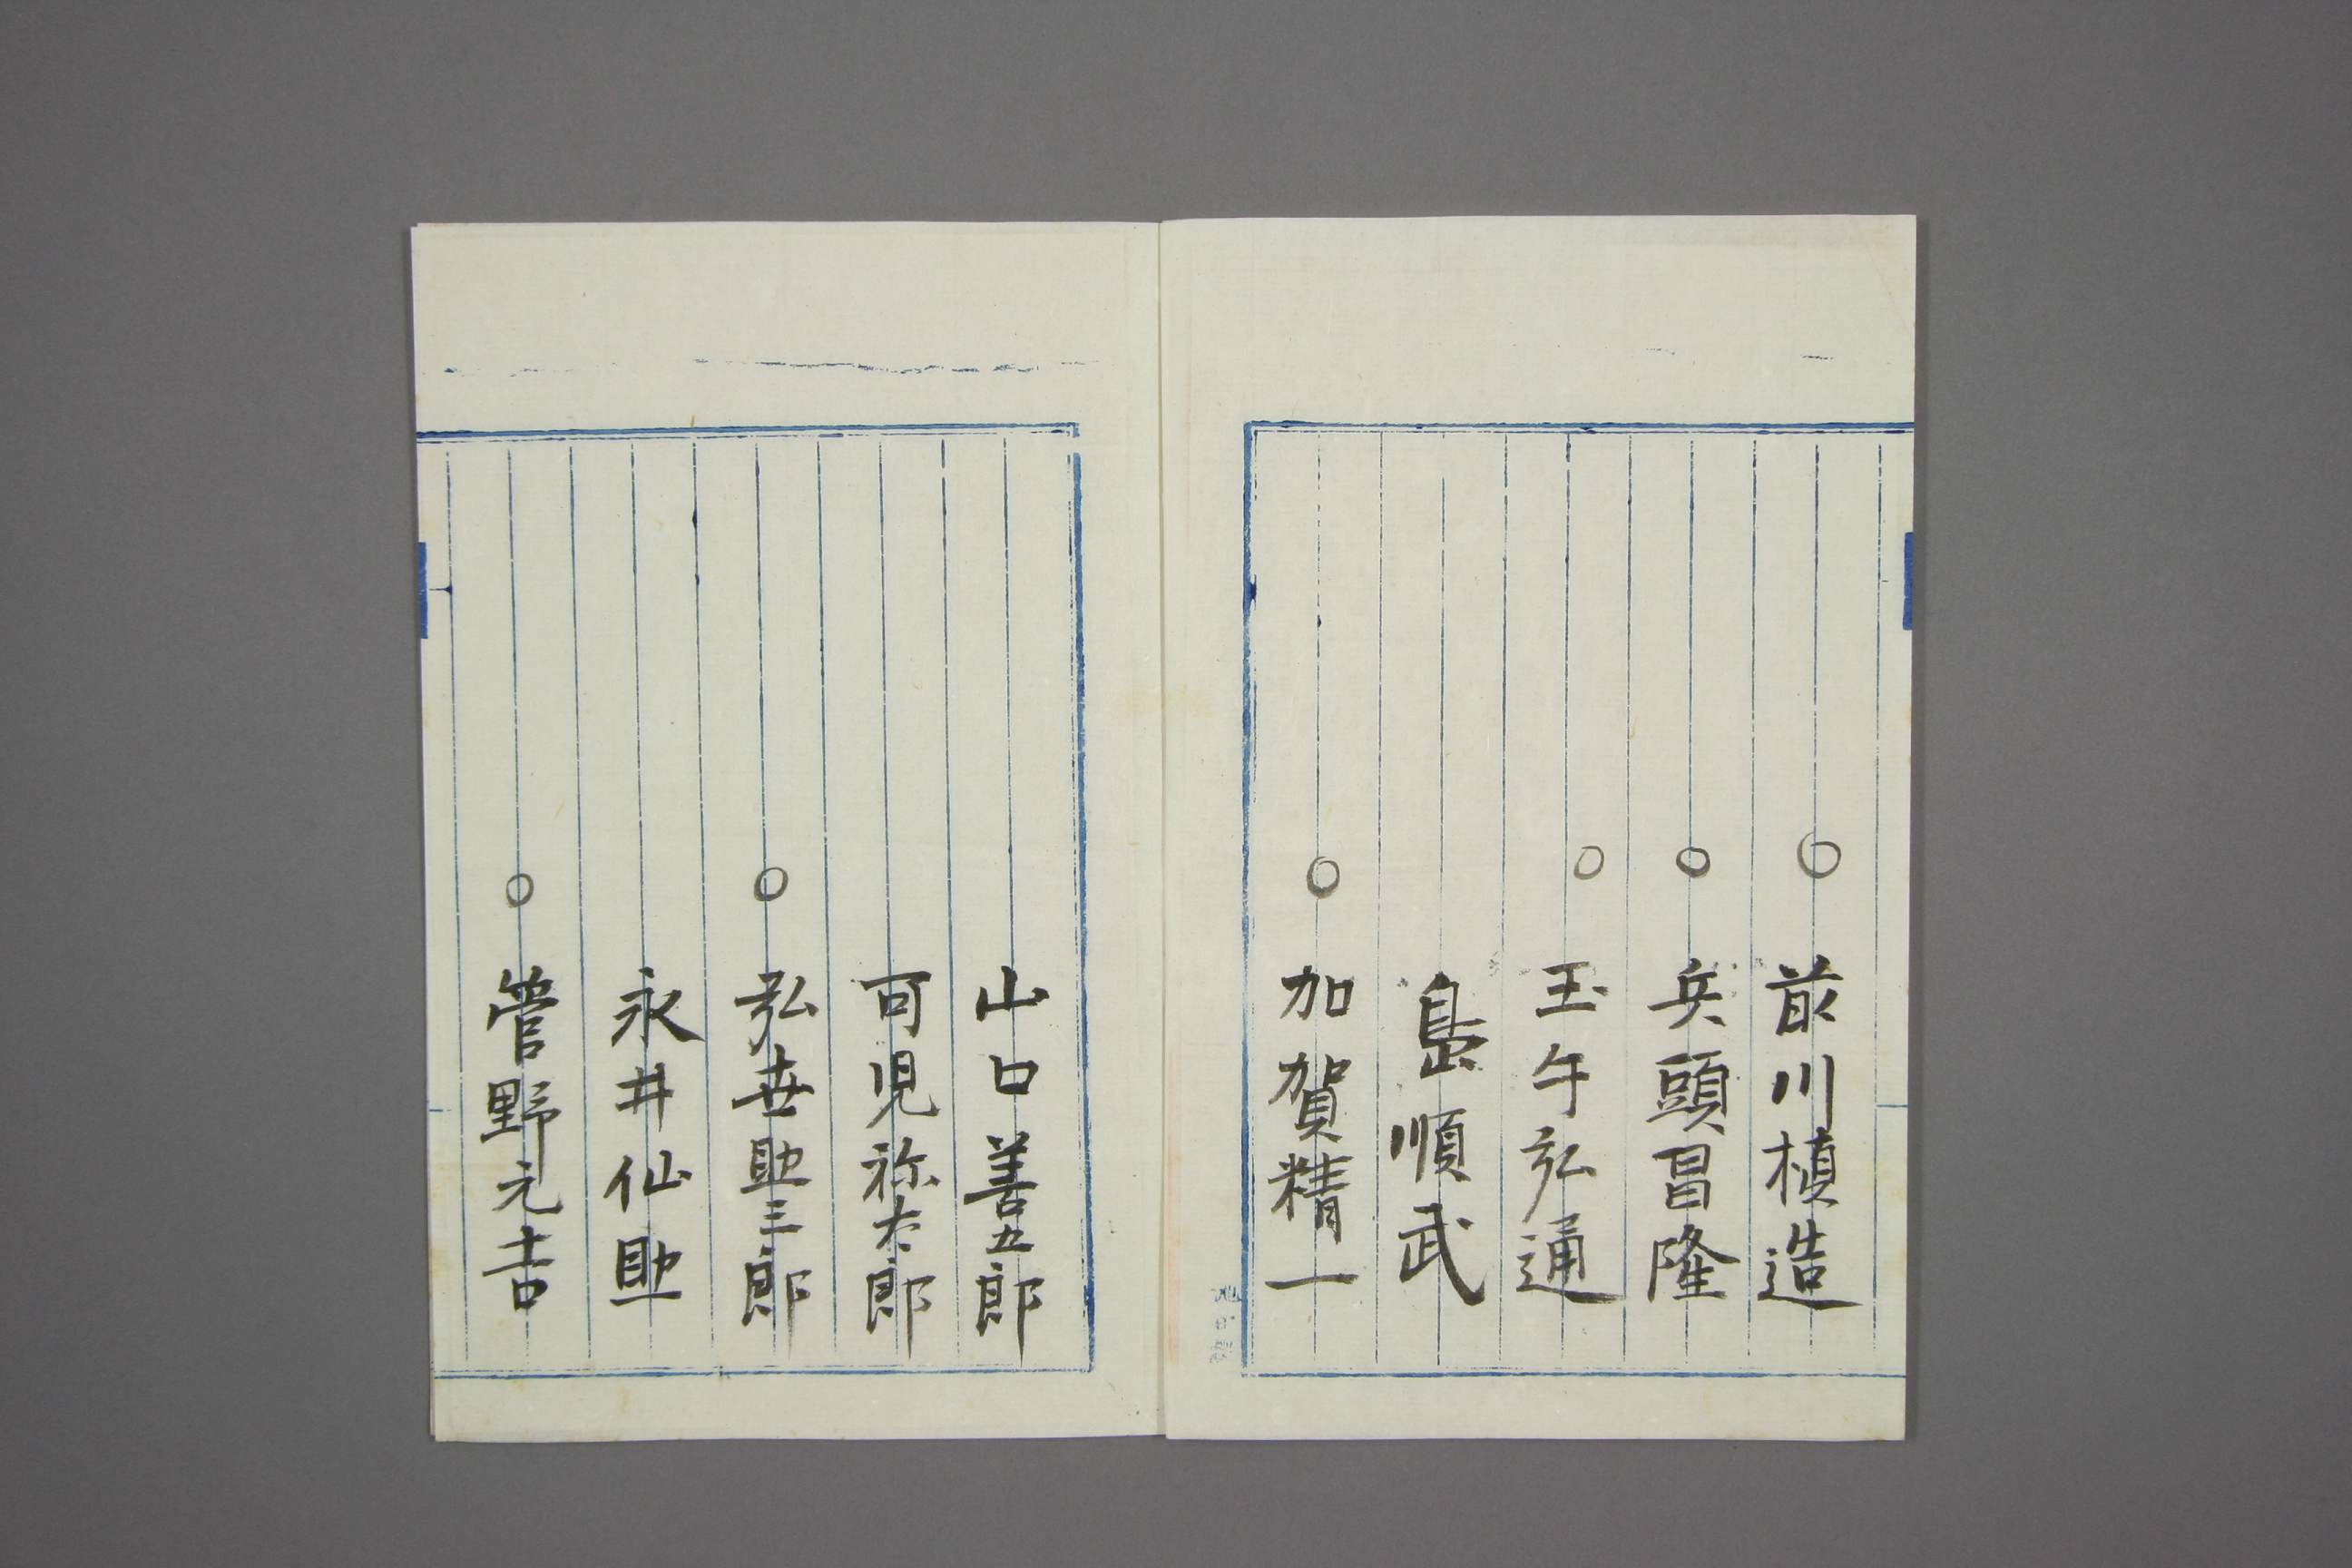 ○前川槙造
○兵頭昌隆
○玉午弘通
島順武
○加賀精一
山口善五郎
可児祢太郎
○弘世助三郎
永井仙助
○菅野元吉